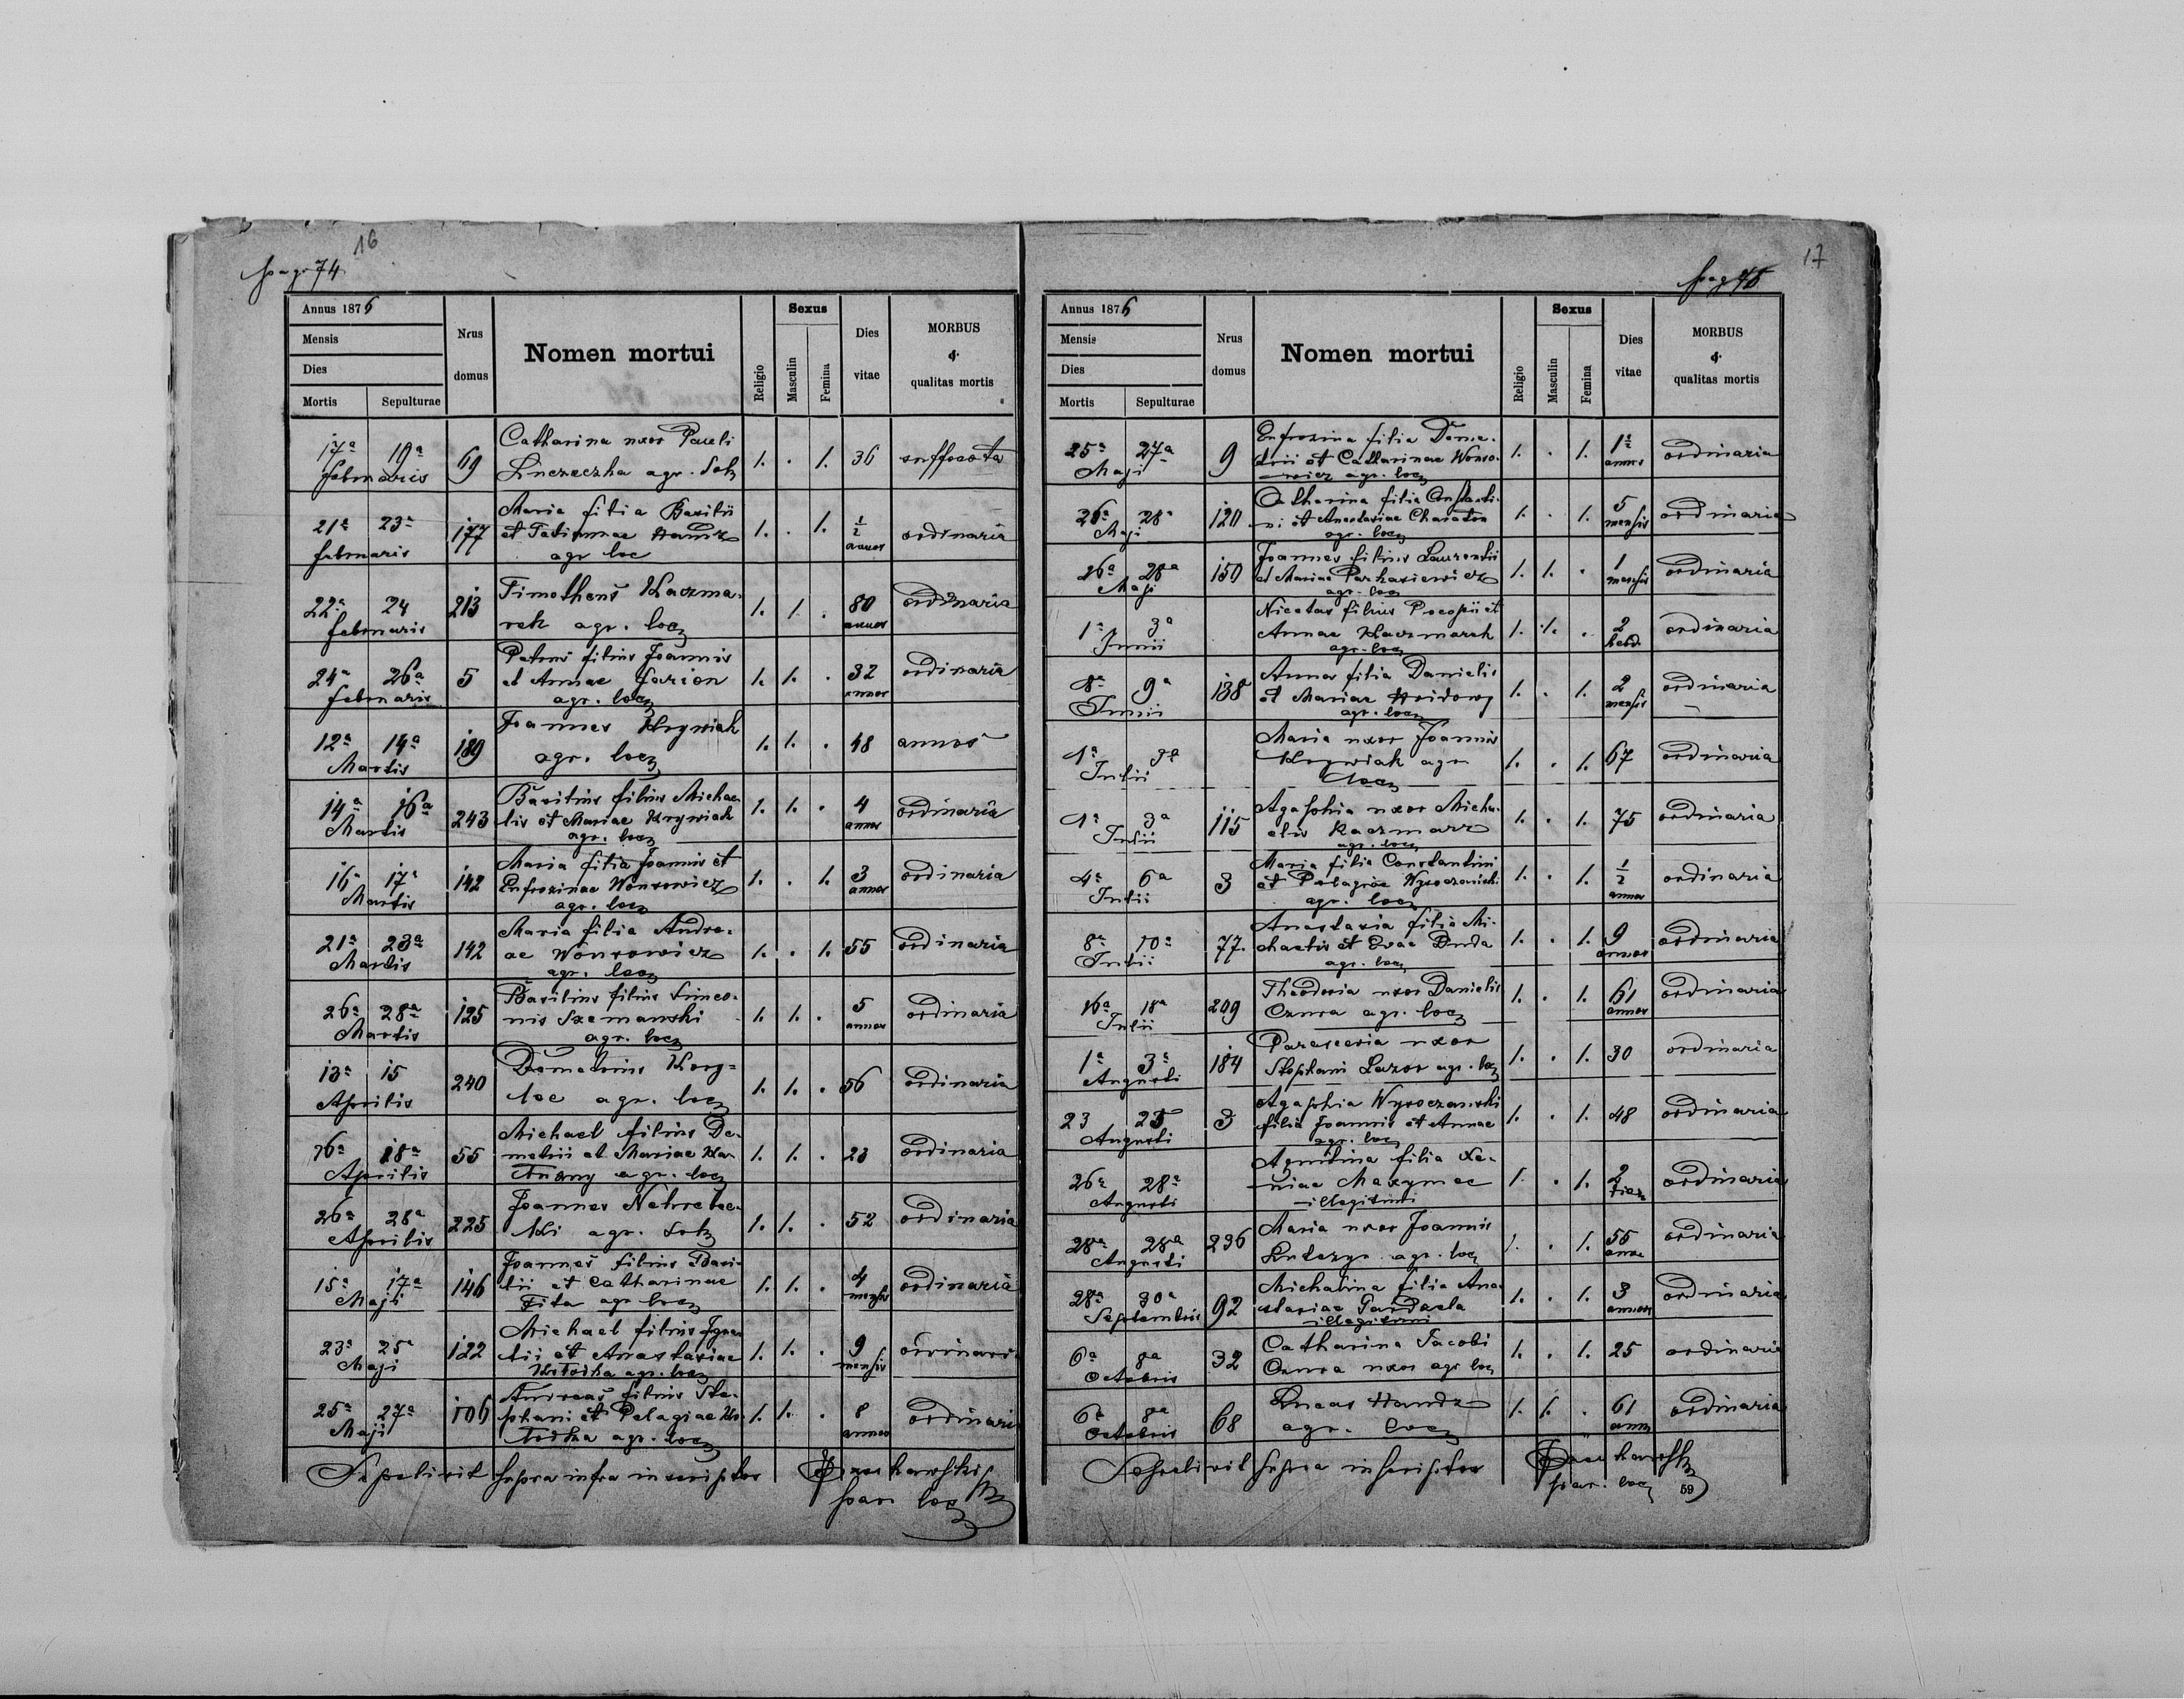 16
pag 74
Annus 1876
Mensis
Dies
Mortis Sepulturae
Nrus domus
Nomen mortui
Religio
Sexus
Masculin
Femina
Dies vitae
MORBUS & qualitas mortis
17a 19a 69 Catharina uxor Pauli 1. . 1. 36 suffocata
Februaris agr.
21a 23a 177 Maria filia Basilii 1. . 1. 1/2 ordinaria
Februaris et Tatiannae Handz annos
agr loc
22a 24 213 Timotheus Kaczma- 1. 1. . 80 ordinaria
Februaris rek agr. loc annos
24a 26a 5 Petrus filius Joannis 1. 1. . 32 ordinaria
Februaris et Annae Farion annos
agr. loc
12a 14a 189 Joannes Krywiak 1. 1. . 48 annos
Martis agr. loc
14a 16a 243 Basilius filius Michae- 1. 1. . 4 ordinaria
Martis lis et Mariae Krywiak annos
agr. loc
16a 17a 142 Maria filia Joannis et 1. . 1. 3 ordinaria
Martis Eufrosinae Wonsowicz annos
agr. loc
21a 23a 142 Maria filia Andre- 1. . 1. 55 ordinaria
Martis ae Wonsowicz
agr. loc
26a 28a 125 Basilius filius Simeo- 1. 1. . 5 ordinaria
Martis nis Szemanski annos
agr. loc
13a 15 240 Demetrius 1. 1. . 56 ordinaria
Aprilis agr. loc
16a 18a 55 Michael filius De- 1. 1. . 23 ordinaria
Aprilis metrii et Mariae
agr. loc
26a 28a 225 Joannes 1. 1. . 52 ordinaria
Aprilis agr.
15a 17a 146 Joannes filius Basi- 1. 1. . 4 ordinaria
Maji lii et Catharinae mensis
Fita agr loc
23a 25a 122 Michael filius Igna- 1. 1. . 9 ordinari
Maji tii et Anastasiae mensis
agr. loc
25a 27a 106 Andreas filius Ste- 1. 1. . 8 ordinari
Maji phani et Pelagiae annos
agr. loc
Sepelivit supra infra inscriptos
par loc
17
pag 75
Annus 1876
Mensis
Dies
Mortis Sepulturae
Nrus domus
Nomen mortui
Religio
Sexus
Masculin
Femina
Dies vitae
MORBUS & qualitas mortis
25a 27a 9 Eufrosina filia Deme- 1. . 1. 1 1/2 ordinaria
Maji trii et Catharinae Wonso- annos
wicz agr. loc
26a 28a 120 Catharina filia Constanti- 1. . 1. 5 ordinaria
Maji ni et Anastasiae Charaton mensis
agr. loc
26a 28a 150 Joannes filius Laurentii 1. 1. . 1 ordinaria
Maji et Mariae Parhasiewicz mensis
agr. loc
1a 3a Nicetas filius Procopii et 1. 1. . 2 ordinaria
Junii Annae Kaczmarek hebd.
agr. loc
8a 9a 138 Anna filia Danielis 1. . 1. 2 ordinaria
Junii et Mariae mensis
agr. loc
1a 3a Maria uxor Joannis 1. . 1. 67 ordinaria
Julii Krywiak agr
loc
1a 3a 115 Agaphia uxor Micha- 1. . 1. 75 ordinaria
Julii elis Kaczmarz
agr. loc
4a 6a 3 Maria filia Constantini 1. . 1. 1/2 ordinaria
Julii et Pelagiae Wysoczanski annos
agr. loc
8a 10a 77. Anastasia filia Mi- 1. . 1. 9 ordinaria
Julii chaelis et Evae Duda annos
agr. loc
16a 18a 209 Theodosia uxor Danielis 1. . 1. 61 ordinaria
Julii Oznra agr. loc annos
1a 3a 184 Parascevia uxor 1. . 1. 30 ordinaria
Augusti Stephani Lazor agr. loc
23 25 3 Agaphia Wysoczanski 1. . 1. 48 ordinaria
Augusti filia Joannis et Annae
agr. loc
26a 28a filia Xe- 1. . 1. 2 ordinaria
Augusti niae dies
illegitimi
28a 28a 236 Maria uxor Joannis 1. . 1. 55 ordinaria
Augusti agr. loc annos
28a 30a 92 Michalina filia Ana- 1. . 1. 3 ordinaria
Septembris stasiae annos
illegitimi
6a 8a 32 Catharina Jacobi 1. . 1. 25 ordinaria
Octobris Oznra uxor agr loc
6a 8a 68 Lucas Handz 1. 1. . 61 ordinaria
Octobris agr. loc annos
Sepelivit supra inscriptos
par. loc
59